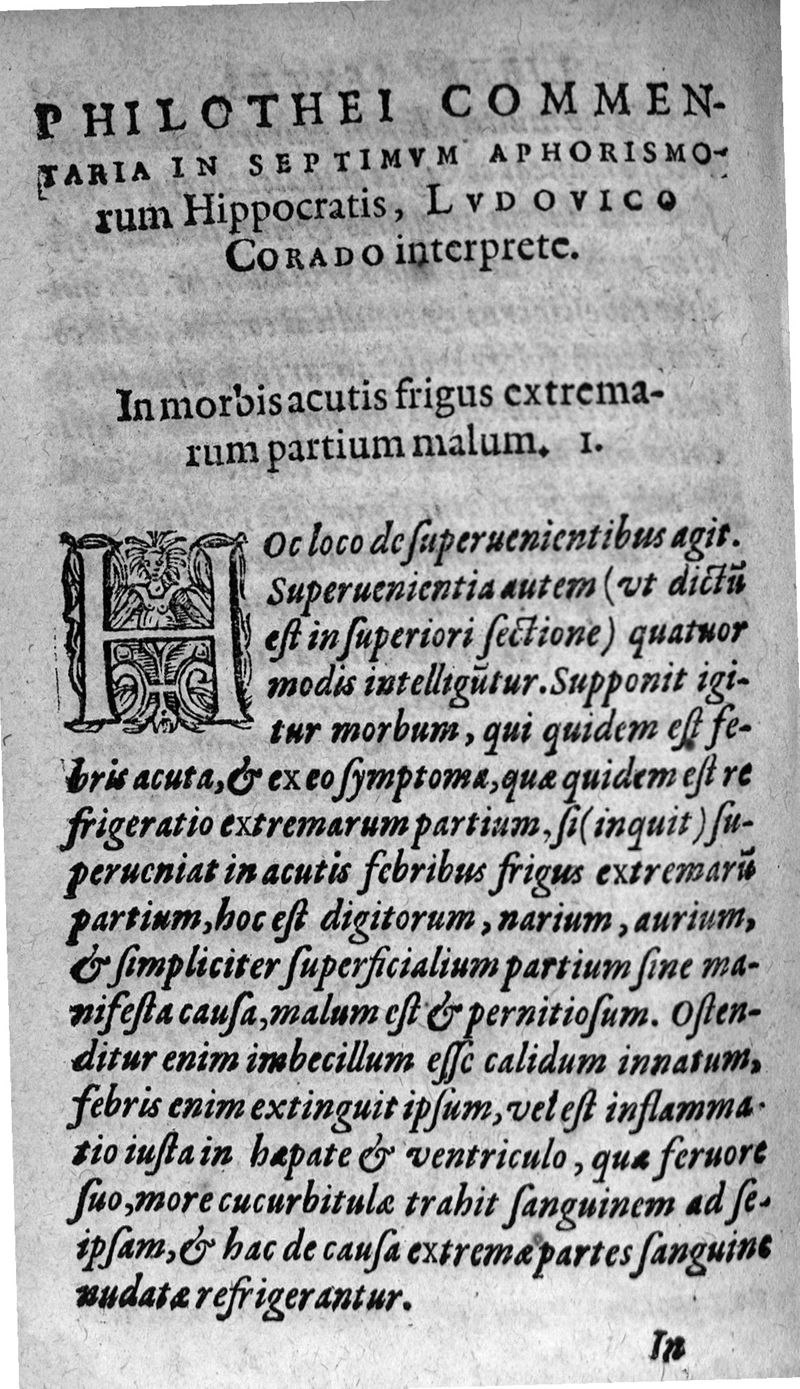 PHILOTHEI COMMEN-
TARIA IN SEPTIMVM APHORISMO-
rum Hippocratis, LVDOVICO
CORADO interprete.
In morbis acutis frigus extrema-
rum partium malum. 1.
HOc loco de ſuperuenientibus agit.
Superuenientia autem (vt dictū
eſt in ſuperiori ſectione) quatuor
modis intelligūtur. Supponit igi-
tur morbum, qui quidem eſt fe-
bris acuta, & ex eo ſymptoma, quæ quidem eſt re
frigeratio extremarum partium, ſi (inquit) ſu-
perueniat in acutis febribus frigus extremarū
partium, hoc eſt digitorum, narium, aurium,
& ſimpliciter ſuperficialium partium ſine ma-
nifeſta cauſa, malum eſt & pernitioſum. Oſten-
ditur enim imbecillum eſſe calidum innatum,
febris enim extinguit ipſum, vel eſt inflamma-
tio iuſta in hæpate & ventriculo, quæ feruore
ſuo, more cucurbitulæ trahit ſanguinem ad ſe-
ipſam, & hac de cauſa extremæ partes ſanguine
nudatæ refrigerantur.
In